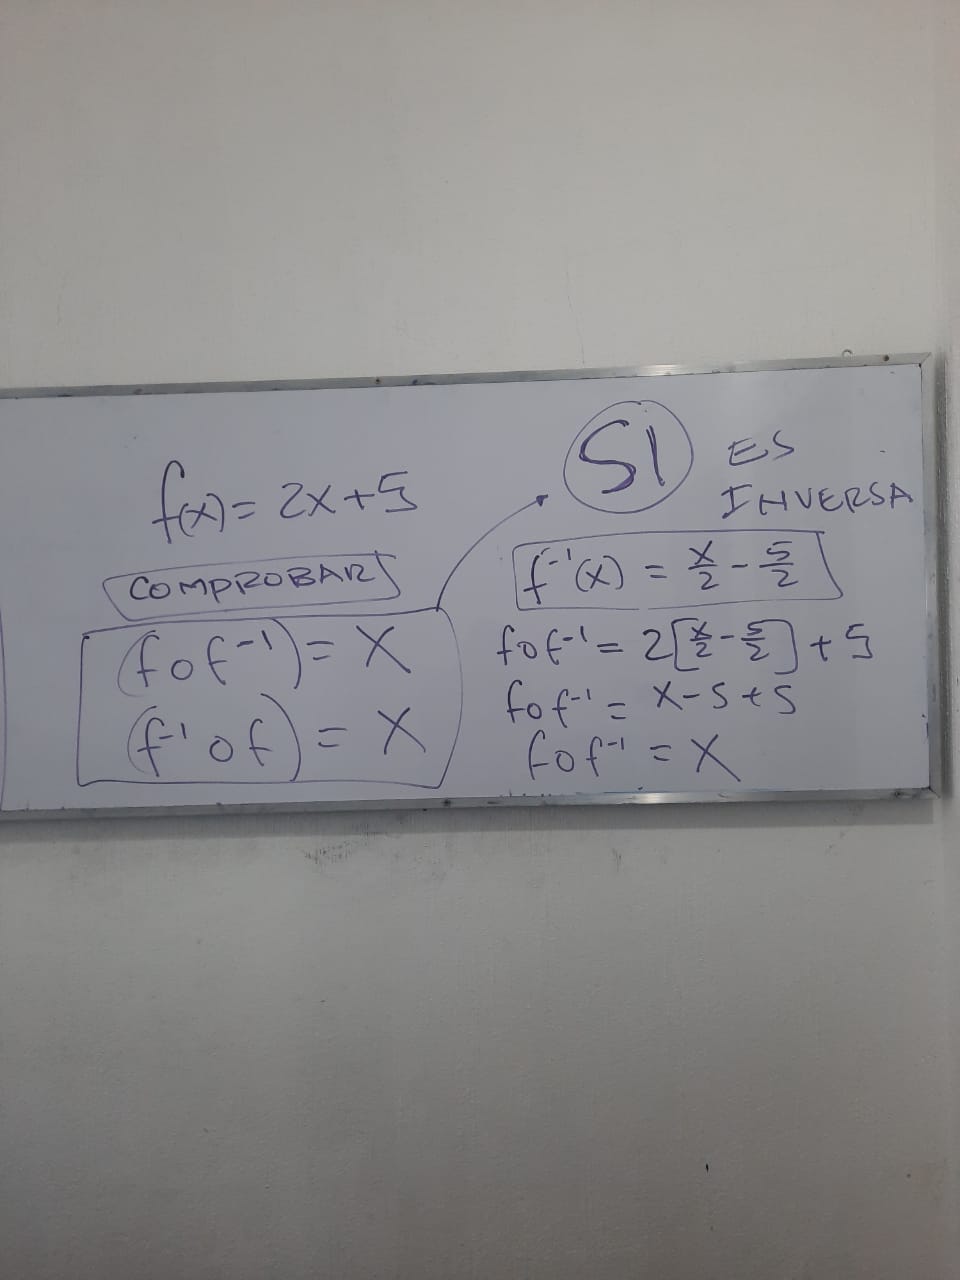 f(x) = 2x+5
COMPROBAR
(f o f⁻¹) = X
(f⁻¹ o f) = X
SI ES
INVERSA
f⁻¹(x) = x/2 - 5/2
f o f⁻¹ = 2[x/2 - 5/2] + 5
f o f⁻¹ = X-5+5
f o f⁻¹ = X